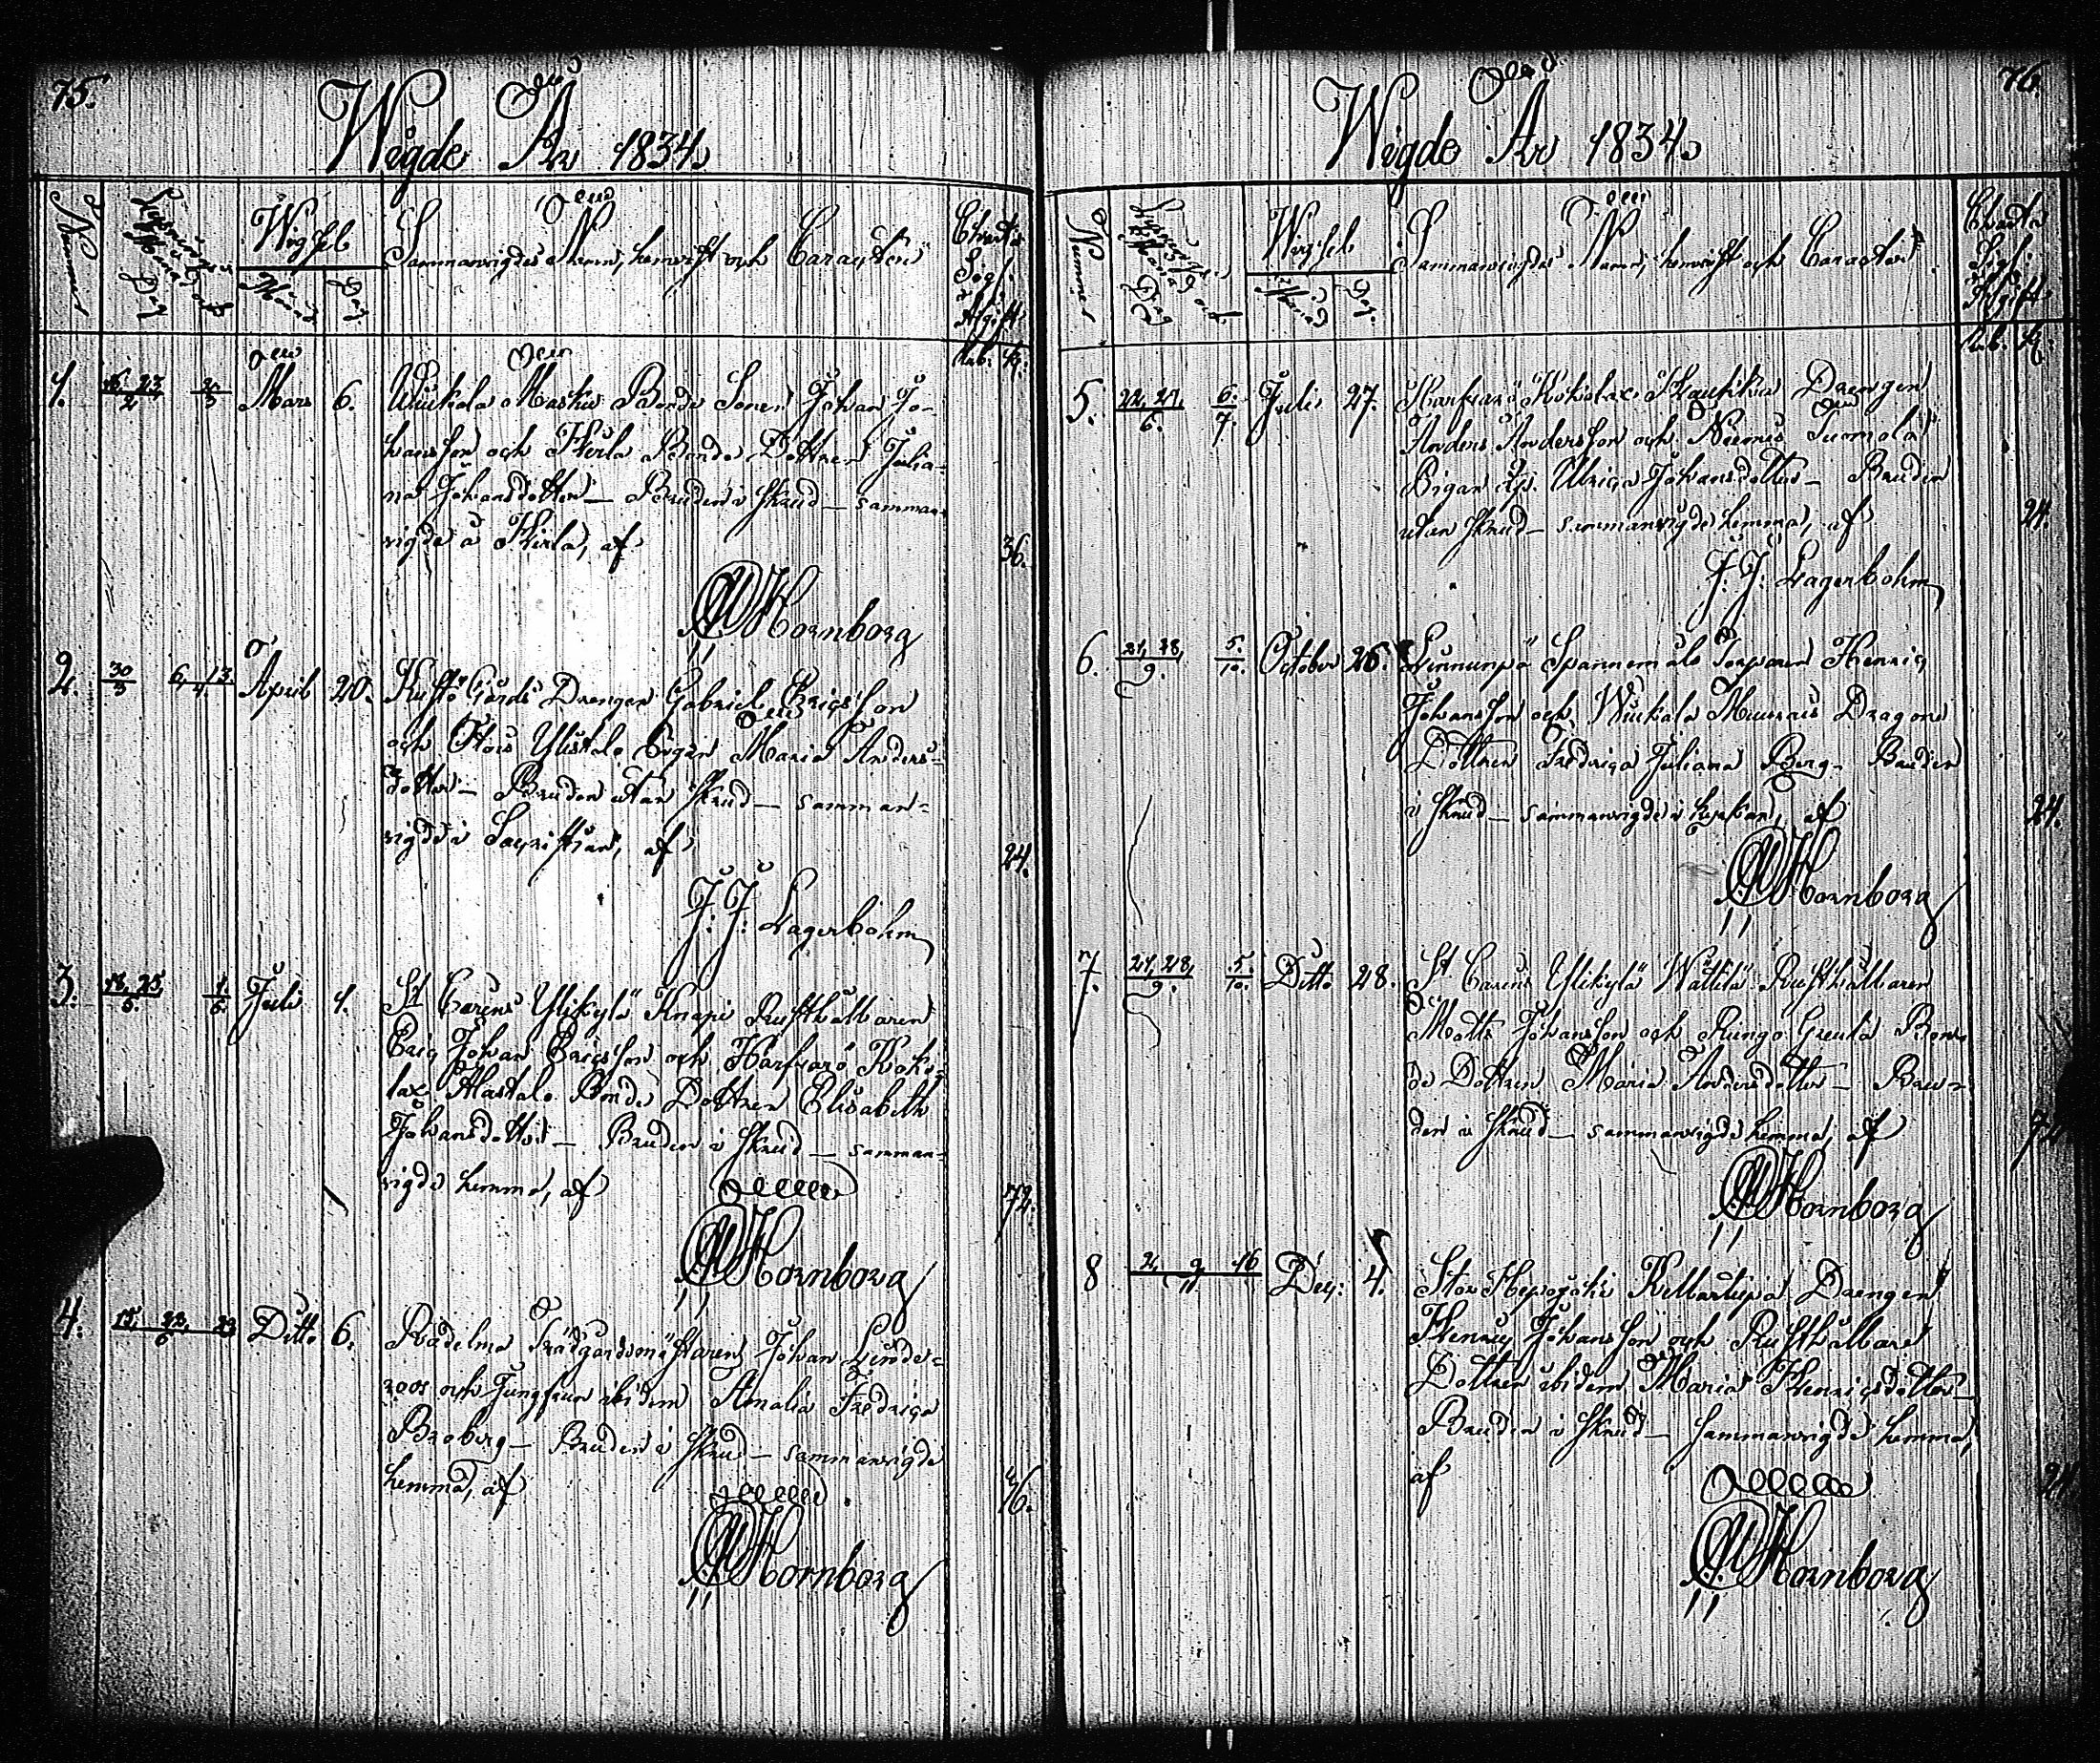 75.
Wigde År 1834.
Nummer
Lysnings Månad och Dag
Wigsel
Månad
Dag
Sammanvigdes Namn, hemvist och Caracter
Charta Sigill Afgift
Rub. K.
1. 16, 23/2 2/3 Mars 6. Wuckala Masku Bonde Sonen Johan Jo-
hansson och Bonde Dottren Julia-
na Johansdotter — Bruden i skrud — samman-
vigde å af 36.
Hornborg
2. 30/3 6, 13/4 April 20. Kustö Gårds Drengen Gabriel Ericsson
och Ylistalo Pigan Maria Anders-
dotter — Bruden utan skrud — samman-
vigde i Sacristian, af 24.
J: J: Lagerbohm
3. 18, 25/5. 1/6. Juli 1. St Carens Ylikylä Knapi Rusthållaren
Eric Johan Ericsson och Harfvarö Koko-
lax Alastalo Bonde Dottren Elisabeth
Johansdotter — Bruden i skrud — samman-
vigde hemma, af 72.
Hornborg
4. 15, 22, 29/6 Ditto 6. Rådelma Trädgårdsmästaren Johan Linde-
roos och Jungfrun ibidem Amalia Fredrica
Broberg — Bruden i skrud — sammanvigde
hemma, af
Hornborg
76.
Wigde År 1834.
Nummer
Lysnings Månad och Dag
Wigsel
Månad
Dag.
Sammanvigdes Namn, hemvist och Caracter
Charta Sigill Afgift
Rub. K.
5. 22, 29/6. 6./7. Juli 27. Harfvarö Kokolax Drengen
Anders Andersson och Niemis Tuomola
Pigan Ulrica Johansdotter — Bruden
utan skrud — sammanvigde hemma, af 24.
J: J: Lagerbohm
6. 21, 28/9. 5./10. October 26. Spannemäls Torparen Henric
Johansson och Wuckala Dragon
Dottren Fredrica Juliana Berg — Bruden
i skrud — sammanvigde i kyrkan, af 24.
Hornborg
7. 21, 28/9. 5./10. Ditto 28. St Carens Ylikylä Wättilä Rusthållaren
Matts Johansson och Rungo Greula Bon-
de Dottren Maria Andersdotter — Bru-
den i skrud — sammanvigde hemma, af
Hornborg
8 2, 9, 16/11 Dec: 4. Stor Hepojoki Drengen
Henric Johansson och Rusthållare
Dottren ibidem Maria Henricsdotter —
Bruden i skrud — sammanvigde hemma,
af 24
Hornborg